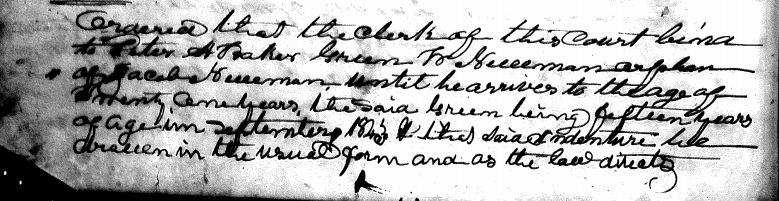 Ordered that the clerk of this Court bind
to Peter H Baker Green W Neweman orphan
of Jacob Neweman, until he arrives to the age of
Twenty One years, the said Green being fifteen years
of age in September 1843 & the said Indenture be
drawen in the usual form and as the law directs